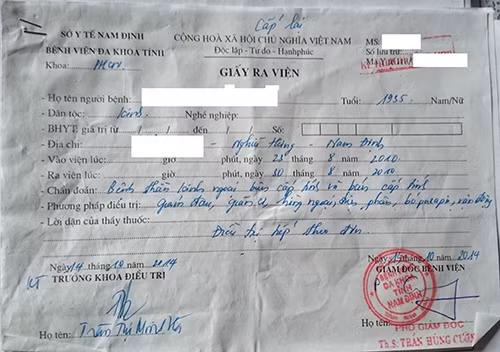 Cấp lại
SỞ Y TẾ NAM ĐỊNH
BỆNH VIỆN ĐA KHOA TỈNH
Khoa:
CỘNG HOÀ XÃ HỘI CHỦ NGHĨA VIỆT NAM
Độc lập - Tự do - Hanhphúc
MS:
Số lưu trữ:
Mã Y tế
GIẤY RA VIỆN
- Họ tên người bệnh: Tuổi: 1935 Nam/Nữ
- Dân tộc: kinh Nghề nghiệp:
- BHYT: giá trị từ / / đến / / Số:
- Địa chỉ: - Nghĩa Hưng - Nam Định
- Vào viện lúc: giờ phút, ngày 23 tháng 8 năm 2010
- Ra viện lúc: giờ phút, ngày 30 tháng 8 năm 2010
- Chẩn đoán: Bệnh thần kinh ngoại biên cấp tính và bán cấp tính
- Phương pháp điều trị: Giảm đau,
- Lời dặn của thầy thuốc:
Điều trị tiếp theo đơn
Ngày 14 tháng 10 năm 2014
KT TRƯỞNG KHOA ĐIỀU TRỊ
Họ tên: Trần Thị
Ngày tháng 10 năm 2014
GIÁM ĐỐC BỆNH VIỆN
BỆNH VIỆN
ĐA KHOA
TỈNH
NAM ĐỊNH
Họ tên: PHÓ GIÁM ĐỐC
Th.S: TRẦN HÙNG CƯỜNG